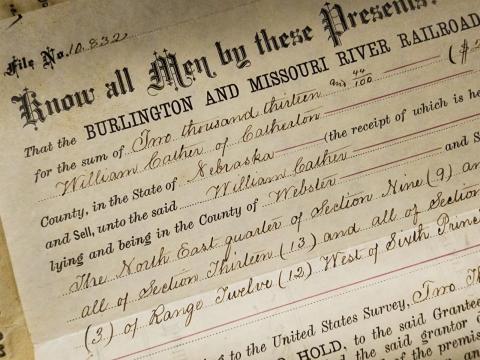 File No. 10.832
Know all Men by these Presents:
That the BURLINGTON AND MISSOURI RIVER RAILROAD
for the sum of Two thousand thirteen and 44/100 ($
William Cather of Catherton
County, in the State of Nebraska (the receipt of which is he
and Sell, unto the said William Cather and S
lying and being in the County of Webster
The North East quarter of Section Nine (9) an
all of Section Thirteen (13) and all of Section
(3) of Range Twelve (12) West of Sixth Princ
to the United States Survey, Two Th
HOLD, to the said Grantee
said grantor
the premis